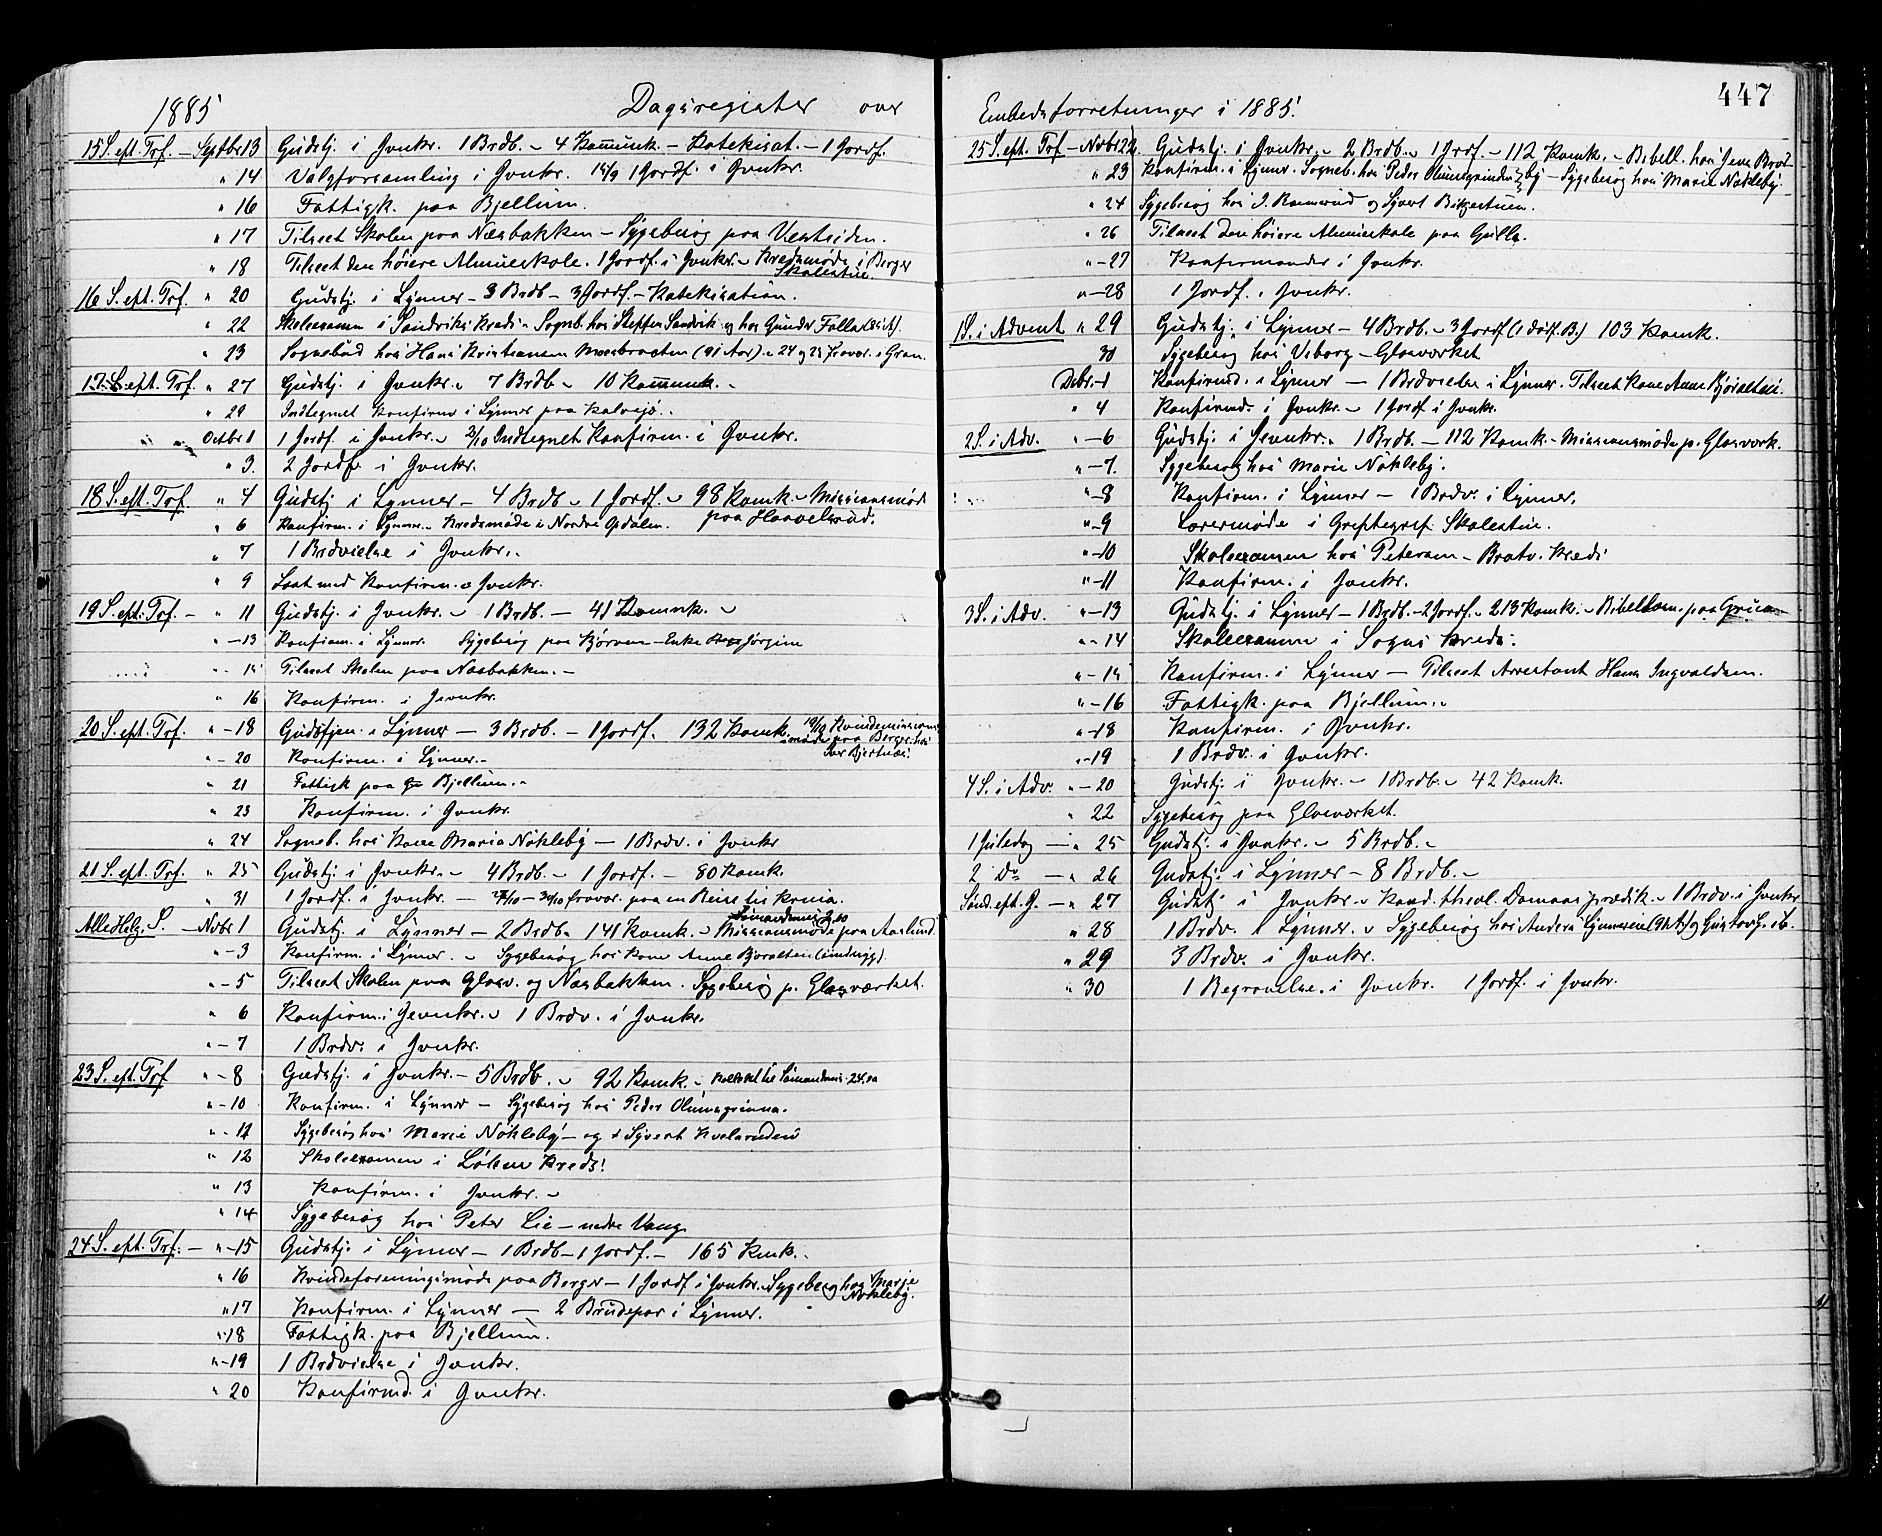 447
1885 Dagsregister over Embedsforretninger i 1885.
15 S. eft. Trf. – Septbr 13 Gudstj. i Jevnkr. 1 Brdb. – 4 Kommunk. – Katekisat. – 1 Jordf.
" 14 Valgforsamling i Jevnkr. 14/9 1 Jordf. i Jevnkr.
" 16 Fattigk. paa Bjellum.
" 17 Tilseet Skolen paa Næsbakken – Sygebesøg paa Vestsiden.
" 18 Tilseet den høiere Almueskole. 1 Jordf. i Jevnkr. – Kredsmøde i Berger Skolestue
16 S. eft. Trf. " 20 Gudstj. i Lynner – 3 Brdb – 3 Jordf. – Katekisation.
" 22 Skoleexamen i Sandviks Kreds – Sogneb. hos Steffen Sandvik og hos Gunder Falla
" 23 Sognebud hos Hans Kristiansen (91 Aar). – 24 og 25 fravær. i Gran.
17 S. eft. Trf. " 27 Gudstj. i Jevnkr. – 7 Brdb – 10 Kommunk. –
" 29 Indtegnet Konfirm i Lynner paa Kalvsjø. –
" " Octbr 1 1 Jordf. i Jevnkr. – 2/10 Indtegnet Konfirm. i Jevnkr.
" 3. 2 Jordf. i Jevnkr.
18 S. eft. Trf. " 4 Gudstj. i Lynner – 4 Brdb – 1 Jordf. – 98 Komk. – Missionsmøde paa Haavelsrud.
" 6 Konfirm. i Lynner – Kredsmøde i Nordre Opdalen.
" 7 1 Brdvielse i Jevnkr. –
" 9 Læst med Konfirm. i Jevnkr.
19 S. eft. Trf. – " 11 Gudstj. i Jevnkr. – 1 Brdb. – 41 Komnk. –
" – 13 Konfirm. i Lynner. Sygebesøg paa Bjørven – Enke Jørgine
" – 15 Tilseet Skolen paa Næsbakken. –
" 16 Konfirm. i Jevnkr.
20 S. eft. Trf. " – 18 Gudstjen. i Lynner – 3 Brdb. – 1 Jordf. 132 Komk. 19/10 Kvindemissions møde paa Berger hos Iver Bjertnæs.
" – 20 Konfirm. i Lynner. –
" 21 Fattigk paa Bjellum. –
" 23 Konfirm. i Jevnkr.
" 24 Sogneb. hos Kone Maria Nøkleby – 1 Brdv. i Jevnkr
21 S. eft. Trf. " 25 Gudstj. i Jevnkr. – 4 Brdb. – 1 Jordf. – 80 Komk.
" 31 1 Jordf. i Jevnkr. – 27/10 – 30/10 fravær. paa en Reise til Krnia.
Alle Helg. S. – Novbr 1 Gudstj. i Lynner – 2 Brdb. 141 Komk. – Missionsmøde paa Aaslund.
" – 3 Konfirm. i Lynner. – Sygebesøg hos Kone Anne Bjøralten
" – 5 Tilseet Skolen paa Glasv. og Næsbakken. Sygebesøg p. Glasværket.
" 6 Konfirm. i Jevnkr. – 1 Brdv. i Jevnkr.
" – 7 1 Brdv. i Jevnkr.
23 S. eft. Trf " – 8 Gudstj. i Jevnkr. – 5 Brdb. – 92 Komk. –
" – 10 Konfirm. i Lynner – Sygebesøg hos Peder Olimsgrinna.
" – 11 Sygebesøg hos Marie Nøkleby – og Syvert
" 12 Skoleexamen i Løken Kreds.
" 13 Konfirm. i Jevnkr. –
" 14 Sygebesøg hos Peter Lie – nedre Vang
24 S. eft. Trf. – " – 15 Gudstj. i Lynner – 1 Brdb – 1 Jordf. – 165 Kmk. –
" 16 Kvindeforeningsmøde paa Berger – 1 Jordf i Jevnkr. Sygebesøg hos Marie Nøkleby.
" 17 Konfirm. i Lynner – 2 Brudepar i Lynner.
" 18 Fattigk. paa Bjellum.
" – 19 1 Brdvielse i Jevnkr.
" 20 Konfirmd. i Jevnkr.
25 S. eft. Trf – Novbr 22. Gudstj. i Jevnkr. – 2 Brdb. – 1 Jrdf. – 112 Komk. – Bibell. hos Jens Brød-
" 23 Konfirm. i Lynner. Sogneb. hos Peder Olimsgrinden by – Sygebesøg hos Marie Nøkleby.
" 24 Sygebesøg hos J. Ramsrud og Syvert
" 26 Tilseet den høiere Almueskole paa Gulla.
" – 27 Konfirmander i Jevnkr.
" – 28 1 Jordf. i Jevnkr.
1 S. i Advent " 29 Gudstj. i Lynner – 4 Brdb. – 3 Jordf 103 Komk.
30 Sygebesøg hos Viborg – Glasværket
Debr. – 1 Konfirmd. i Lynner – 1 Brdvielse i Lynner. Tilseet Kone Anne Bjøralten.
" 4 Konfirmd. i Jevnkr. – 1 Jordf i Jevnkr.
2 S. i Adv. " – 6 Gudstj. i Jevnkr. 1 Brdb. – 112 Komk. – Missionsmøde p. Glasværk.
" – 7. Sygebesøg hos Marie Nøkleby.
" – 8 Konfirm. i Lynner – 1 Brdv. i Lynner.
" – 9 Lærermøde i Greftegref Skolestue.
" – 10 Skoleexamen hos Petersen – Bratv. Kreds
" – 11 Konfirm. i Jevnkr.
3 S. i Adv. " – 13 Gudstj. i Lynner – 1 Brdb. – 2 Jordf. – 213 Komk. – Bibellæsn. paa Grua
" – 14 Skoleexamen i Sogns Kreds.
" – 15 Konfirm. i Lynner – Tilseet Arrestant Hans Ingvaldsen.
" – 16 Fattigk. paa Bjellum. –
" – 18 Konfirm. i Jevnkr.
" – 19 1 Brdv. i Jevnkr.
4 S. i Adv. " – 20 Gudstj. i Jevnkr. – 1 Brdb. – 42 Komk.
" 22 Sygebesøg paa Glasværket.
1 Juledag – " 25 Gudstj. i Jevnkr. – 5 Brdb. –
2 Do – " 26 Gudstj. i Lynner – 8 Brdb. –
Sønd. eft. J. – " 27 Gudstj. i Jevnkr. – Kand. theol. Damaas prædik. – 1 Brdv. i Jevnkr
" 28 1 Brdv. i Lynner. – Sygebesøg hos Anders Lynnereie og Gustav
" 29 3 Brdv. i Jevnkr.
" 30 1 Begravelse. i Jevnkr. 1 Jordf. i Jevnkr.